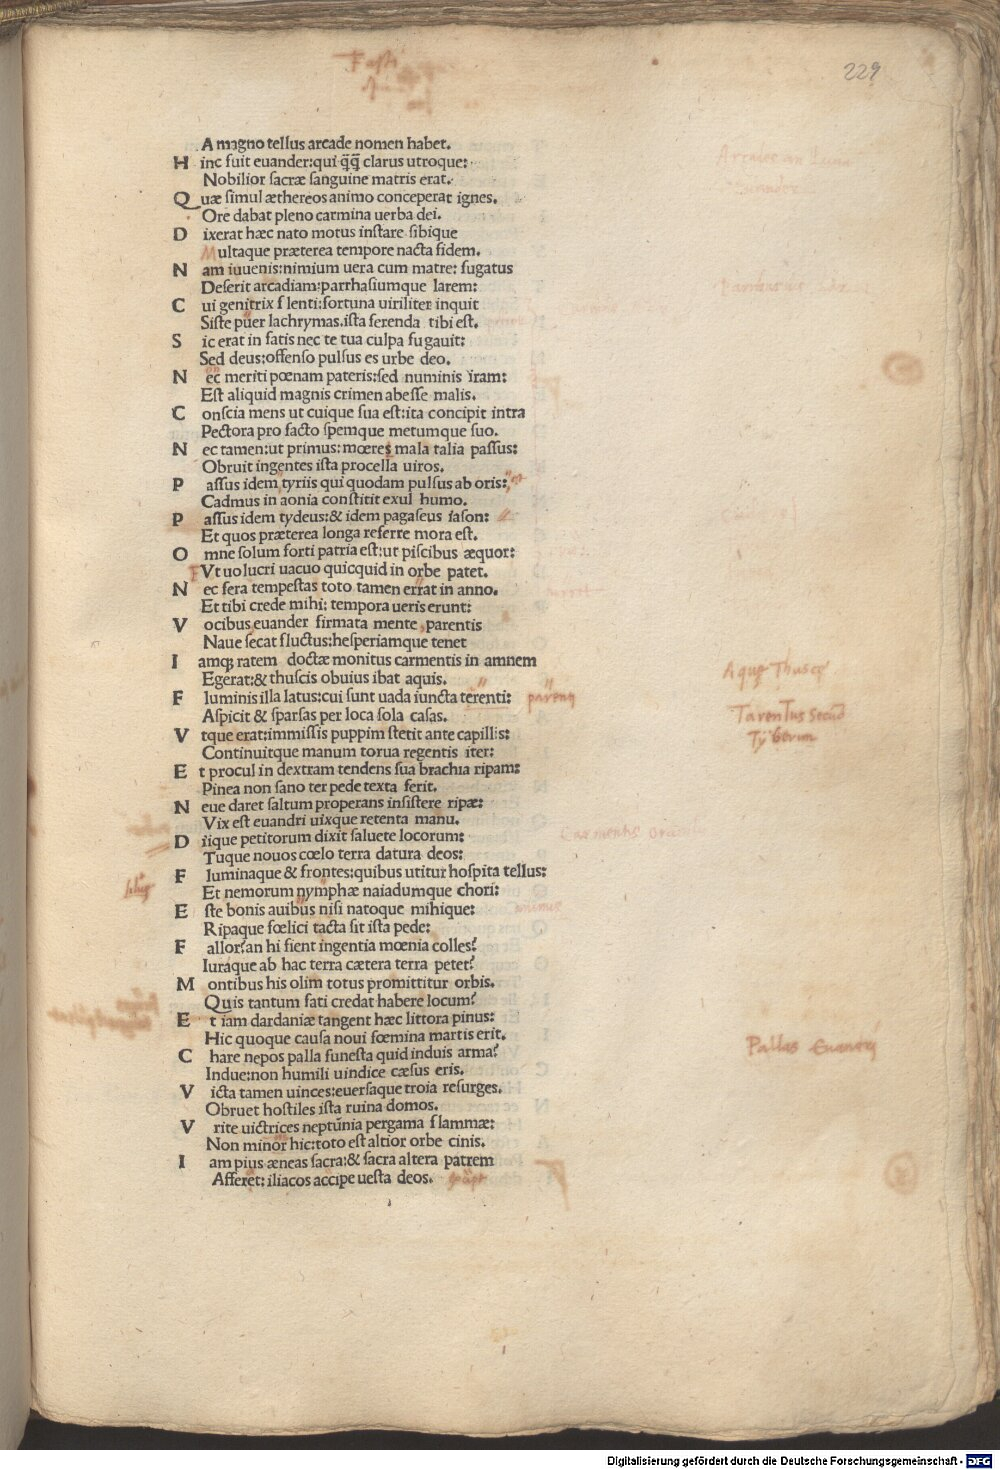 Fasti
229
A magno tellus arcade nomen habet.
H inc fuit euander:qui q̄q̄ clarus utroque:
Nobilior sacræ sanguine matris erat.
Q uæ simul æthereos animo conceperat ignes.
Ore dabat pleno carmina uerba dei.
D ixerat hæc nato motus instare sibique
Multaque præterea tempore nacta fidem.
N am iuuenis:nimium uera cum matre: fugatus
Deserit arcadiam:parrhasiumque larem:
C ui genitrix flenti:fortuna uiriliter inquit
Siste puer lachrymas.ista ferenda tibi est.
S ic erat in fatis nec te tua culpa fugauit:
Sed deus:offenso pulsus es urbe deo.
N ec meriti pœnam pateris:sed numinis iram:
Est aliquid magnis crimen abesse malis.
C onscia mens ut cuique sua est:ita concipit intra
Pectora pro facto spemque metumque suo.
N ec tamen:ut primus:mœres mala talia passus:
Obruit ingentes ista procella uiros.
P assus idem tyriis qui quodam pulsus ab oris: est
Cadmus in aonia constitit exul humo.
P assus idem tydeus:& idem pagaseus iason:
Et quos præterea longa referre mora est.
O mne solum forti patria est:ut piscibus æquor:
Vt uolucri uacuo quicquid in orbe patet.
N ec fera tempestas toto tamen errat in anno.
Et tibi crede mihi: tempora ueris erunt:
V ocibus euander firmata mente parentis
Naue secat fluctus:hesperiamque tenet
I amq; ratem doctæ monitus carmentis in amnem
Egerat:& thuscis obuius ibat aquis.
Aquę Thuscę
F luminis illa latus:cui sunt uada iuncta terenti:
Aspicit & sparsas per loca sola casas.
Tarentus
V tque erat:immissis puppim stetit ante capillis:
Continuitque manum torua regentis iter:
E t procul in dextram tendens sua brachia ripam:
Pinea non sano ter pede texta ferit.
N eue daret saltum properans insistere ripæ:
Vix est euandri uixque retenta manu.
D iique petitorum dixit saluete locorum:
Tuque nouos cœlo terra datura deos:
F luminaque & frontes:quibus utitur hospita tellus:
Et nemorum nymphæ naiadumque chori:
E ste bonis auibus nisi natoque mihique:
Ripaque fœlici tacta sit ista pede:
F allor?an hi fient ingentia mœnia colles?
Iuraque ab hac terra cætera terra petet?
M ontibus his olim totus promittitur orbis.
Quis tantum fati credat habere locum?
E t iam dardaniæ tangent hæc littora pinus:
Hic quoque causa noui fœmina martis erit.
C hare nepos palla funesta quid induis arma?
Pallas Euandri
Indue:non humili uindice cæsus eris.
V icta tamen uinces:euersaque troia resurges.
Obruet hostiles ista ruina domos.
V rite uictrices neptunia pergama flammæ:
Non minor hic:toto est altior orbe cinis.
I am pius æneas sacra:& sacra altera patrem
Afferet: iliacos accipe uesta deos.
Digitalisierung gefördert durch die Deutsche Forschungsgemeinschaft - DFG